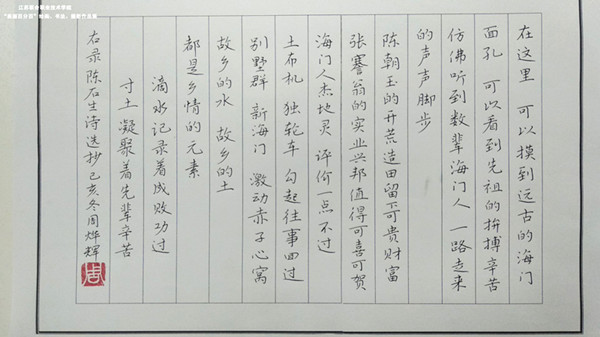 在这里 可以摸到远古的海门
面孔 可以看到先祖的拚搏辛苦
仿佛听到数辈海门人 一路走来
的声声脚步
陈朝玉的开荒造田留下可贵财富
张謇翁的实业兴邦值得可喜可贺
海门人杰地灵 评价一点不过
土布机 独轮车 勾起往事回过
别墅群 新海门 激动赤子心窝
故乡的水 故乡的土
都是乡情的元素
滴水记录着成败功过
寸土凝聚着先辈辛苦
右录陈石生诗选抄己亥冬周烨辉